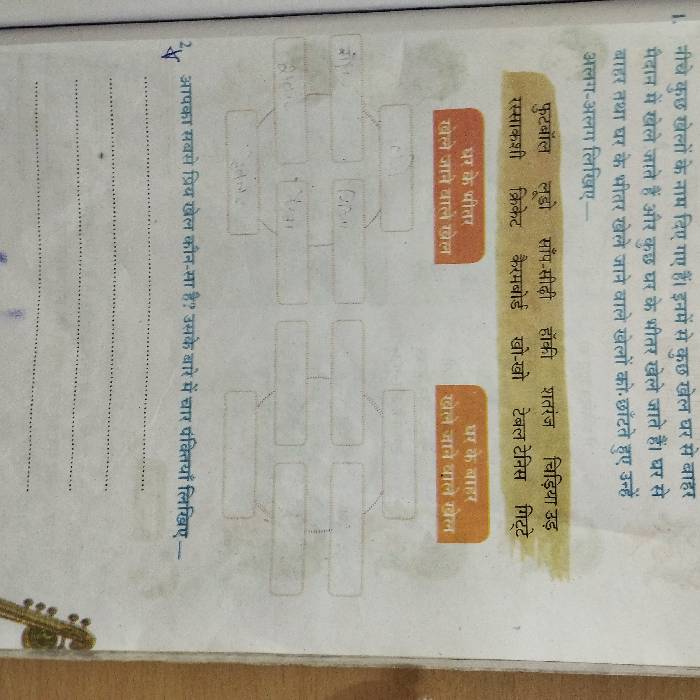 1. नीचे कुछ खेलों के नाम दिए गए हैं। इनमें से कुछ खेल घर से बाहर
मैदान में खेले जाते हैं और कुछ घर के भीतर खेले जाते हैं। घर से
बाहर तथा घर के भीतर खेले जाने वाले खेलों को छाँटते हुए उन्हें
अलग-अलग लिखिए—
फुटबॉल लूडो साँप-सीढ़ी हॉकी शतरंज चिड़िया उड़
रस्साकशी क्रिकेट कैरमबोर्ड खो-खो टेबल टेनिस गिट्टे
घर के भीतर
खेले जाने वाले खेल
घर के बाहर
खेले जाने वाले खेल
2. आपका सबसे प्रिय खेल कौन-सा है? उसके बारे में चार पंक्तियाँ लिखिए—